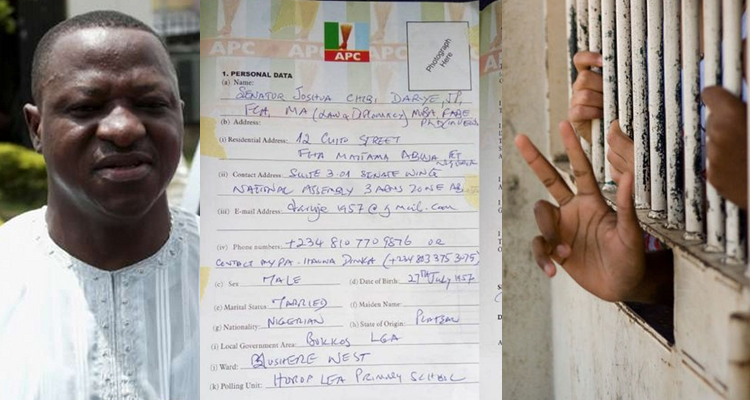 APC
APC
APC
Photograph Here
1. PERSONAL DATA
(a) Name:
SENATOR JOSHUA CHIBI DARIYE, JP,
FCA, MA (LAW & DIPLOMACY) MBA
(b) Address:
(i) Residential Address: 12 CUITO STREET
FHA MAITAMA ABUJA
(ii) Contact Address: SUITE 3.01 SENATE WING
NATIONAL ASSEMBLY 3 ARMS ZONE
(iii) E-mail Address: dariye1957@gmail.com
(iv) Phone numbers: +234 810 770 9876 OR
CONTACT MY PA. DINKA (+234 803 375 3095)
(c) Sex MALE (d) Date of Birth: 27TH July 1957
(e) Marital Status: MARRIED (f) Maiden Name:
(g) Nationality: NIGERIAN (h) State of Origin: PLATEAU
(i) Local Government Area: BOKKOS LGA
(j) Ward: MUSHERE WEST
(k) Polling Unit: HOROP LEA PRIMARY SCHOOL